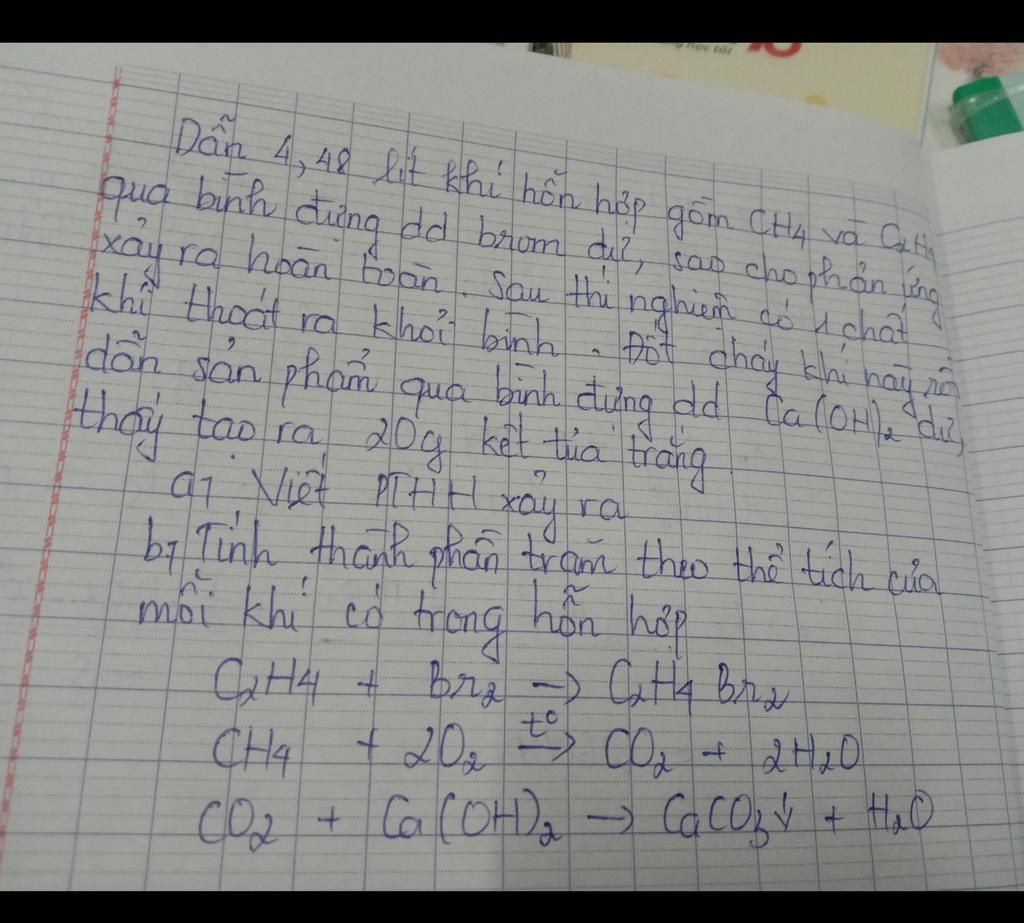 học tốt
Dẫn 4,48 lít khí hỗn hợp gồm CH4 và C2H4
qua bình đựng dd brom dư, sao cho phản ứng
xảy ra hoàn toàn. Sau thí nghiệm có 1 chất
khí thoát ra khỏi bình. Đốt cháy khí này rồi
dẫn sản phẩm qua bình đựng dd Ca(OH)2 dư,
thấy tạo ra 20g kết tủa trắng
a, Viết PTHH xảy ra
b, Tính thành phần trăm theo thể tích của
mỗi khí có trong hỗn hợp
C2H4 + Br2 → C2H4Br2
CH4 + 2O2 t°→ CO2 + 2H2O
CO2 + Ca(OH)2 → CaCO3↓ + H2O